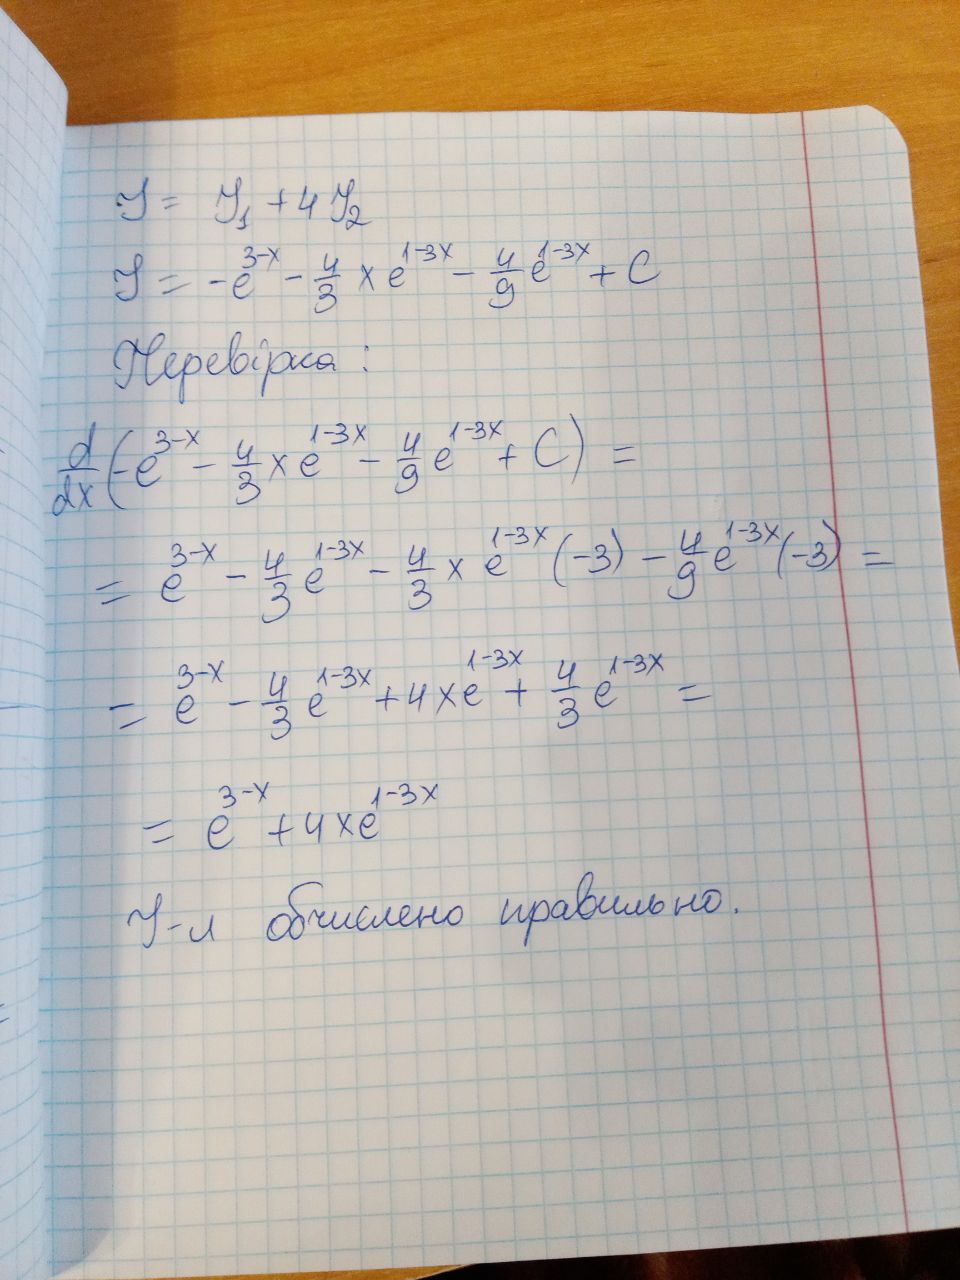 I = I₁ + 4 I₂
I = -e^{3-x} - 4/3 x e^{1-3x} - 4/9 e^{1-3x} + C
Перевірка:
d/dx (-e^{3-x} - 4/3 x e^{1-3x} - 4/9 e^{1-3x} + C) =
= e^{3-x} - 4/3 e^{1-3x} - 4/3 x e^{1-3x} (-3) - 4/9 e^{1-3x} (-3) =
= e^{3-x} - 4/3 e^{1-3x} + 4xe^{1-3x} + 4/3 e^{1-3x} =
= e^{3-x} + 4xe^{1-3x}
І-л обчислено правильно.